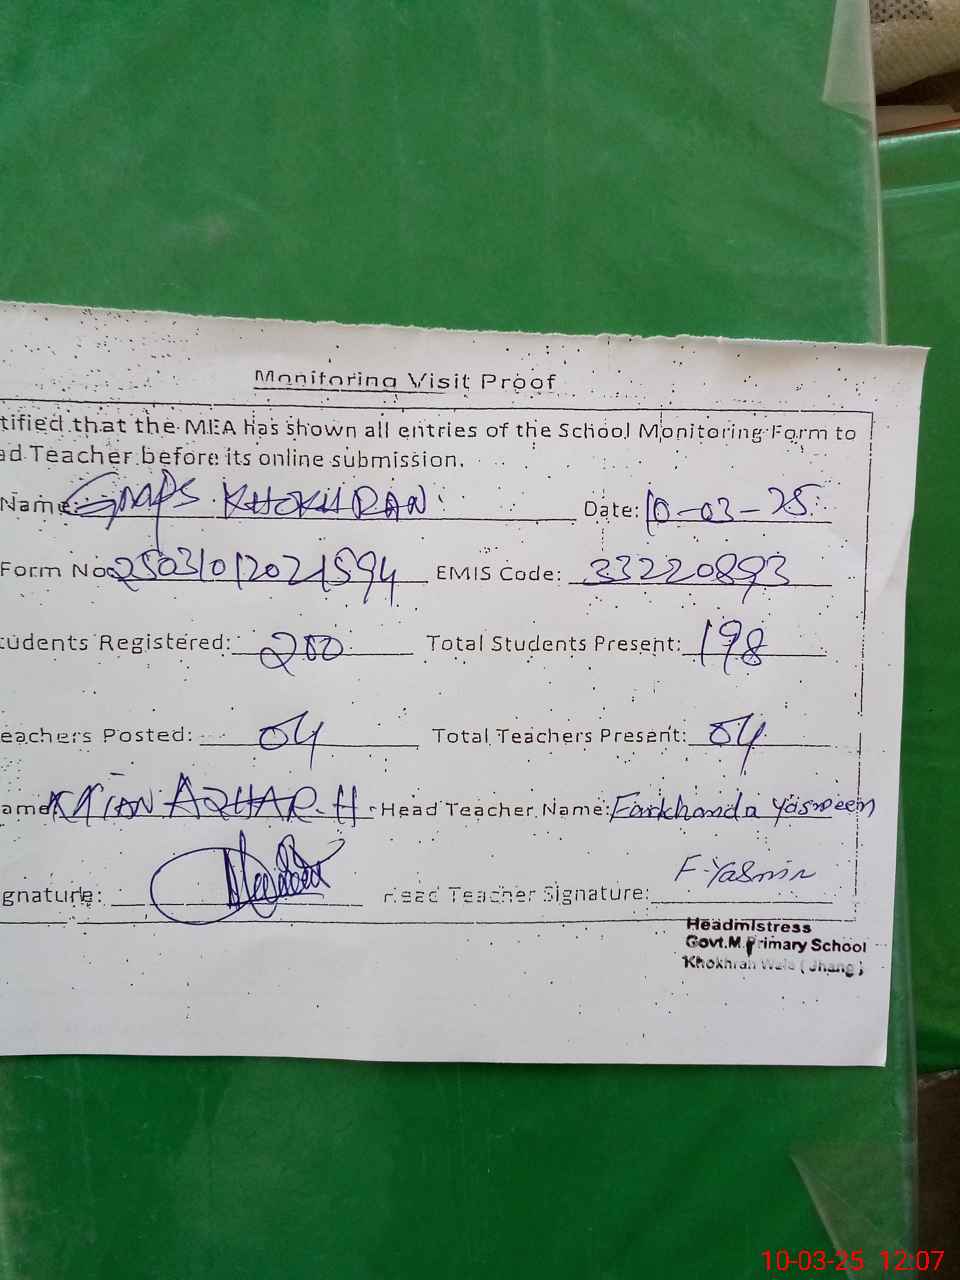 Monitoring Visit Proof
tified that the MEA has shown all entries of the School Monitoring Form to
ad Teacher before its online submission.
Name GMPS KHOKHRAN Date: 10-03-25
Form No 25031012021594 EMIS Code: 33220893
tudents Registered: 200 Total Students Present: 198
eachers Posted: 04 Total Teachers Present: 04
ame AZHAR-H Head Teacher Name: Farkhanda Yasmeen
ignature: Head Teacher Signature: F-Yasmin
Headmistress
Govt.M.Primary School
Khokhrah Wala (Jhang)
10-03-25 12:07